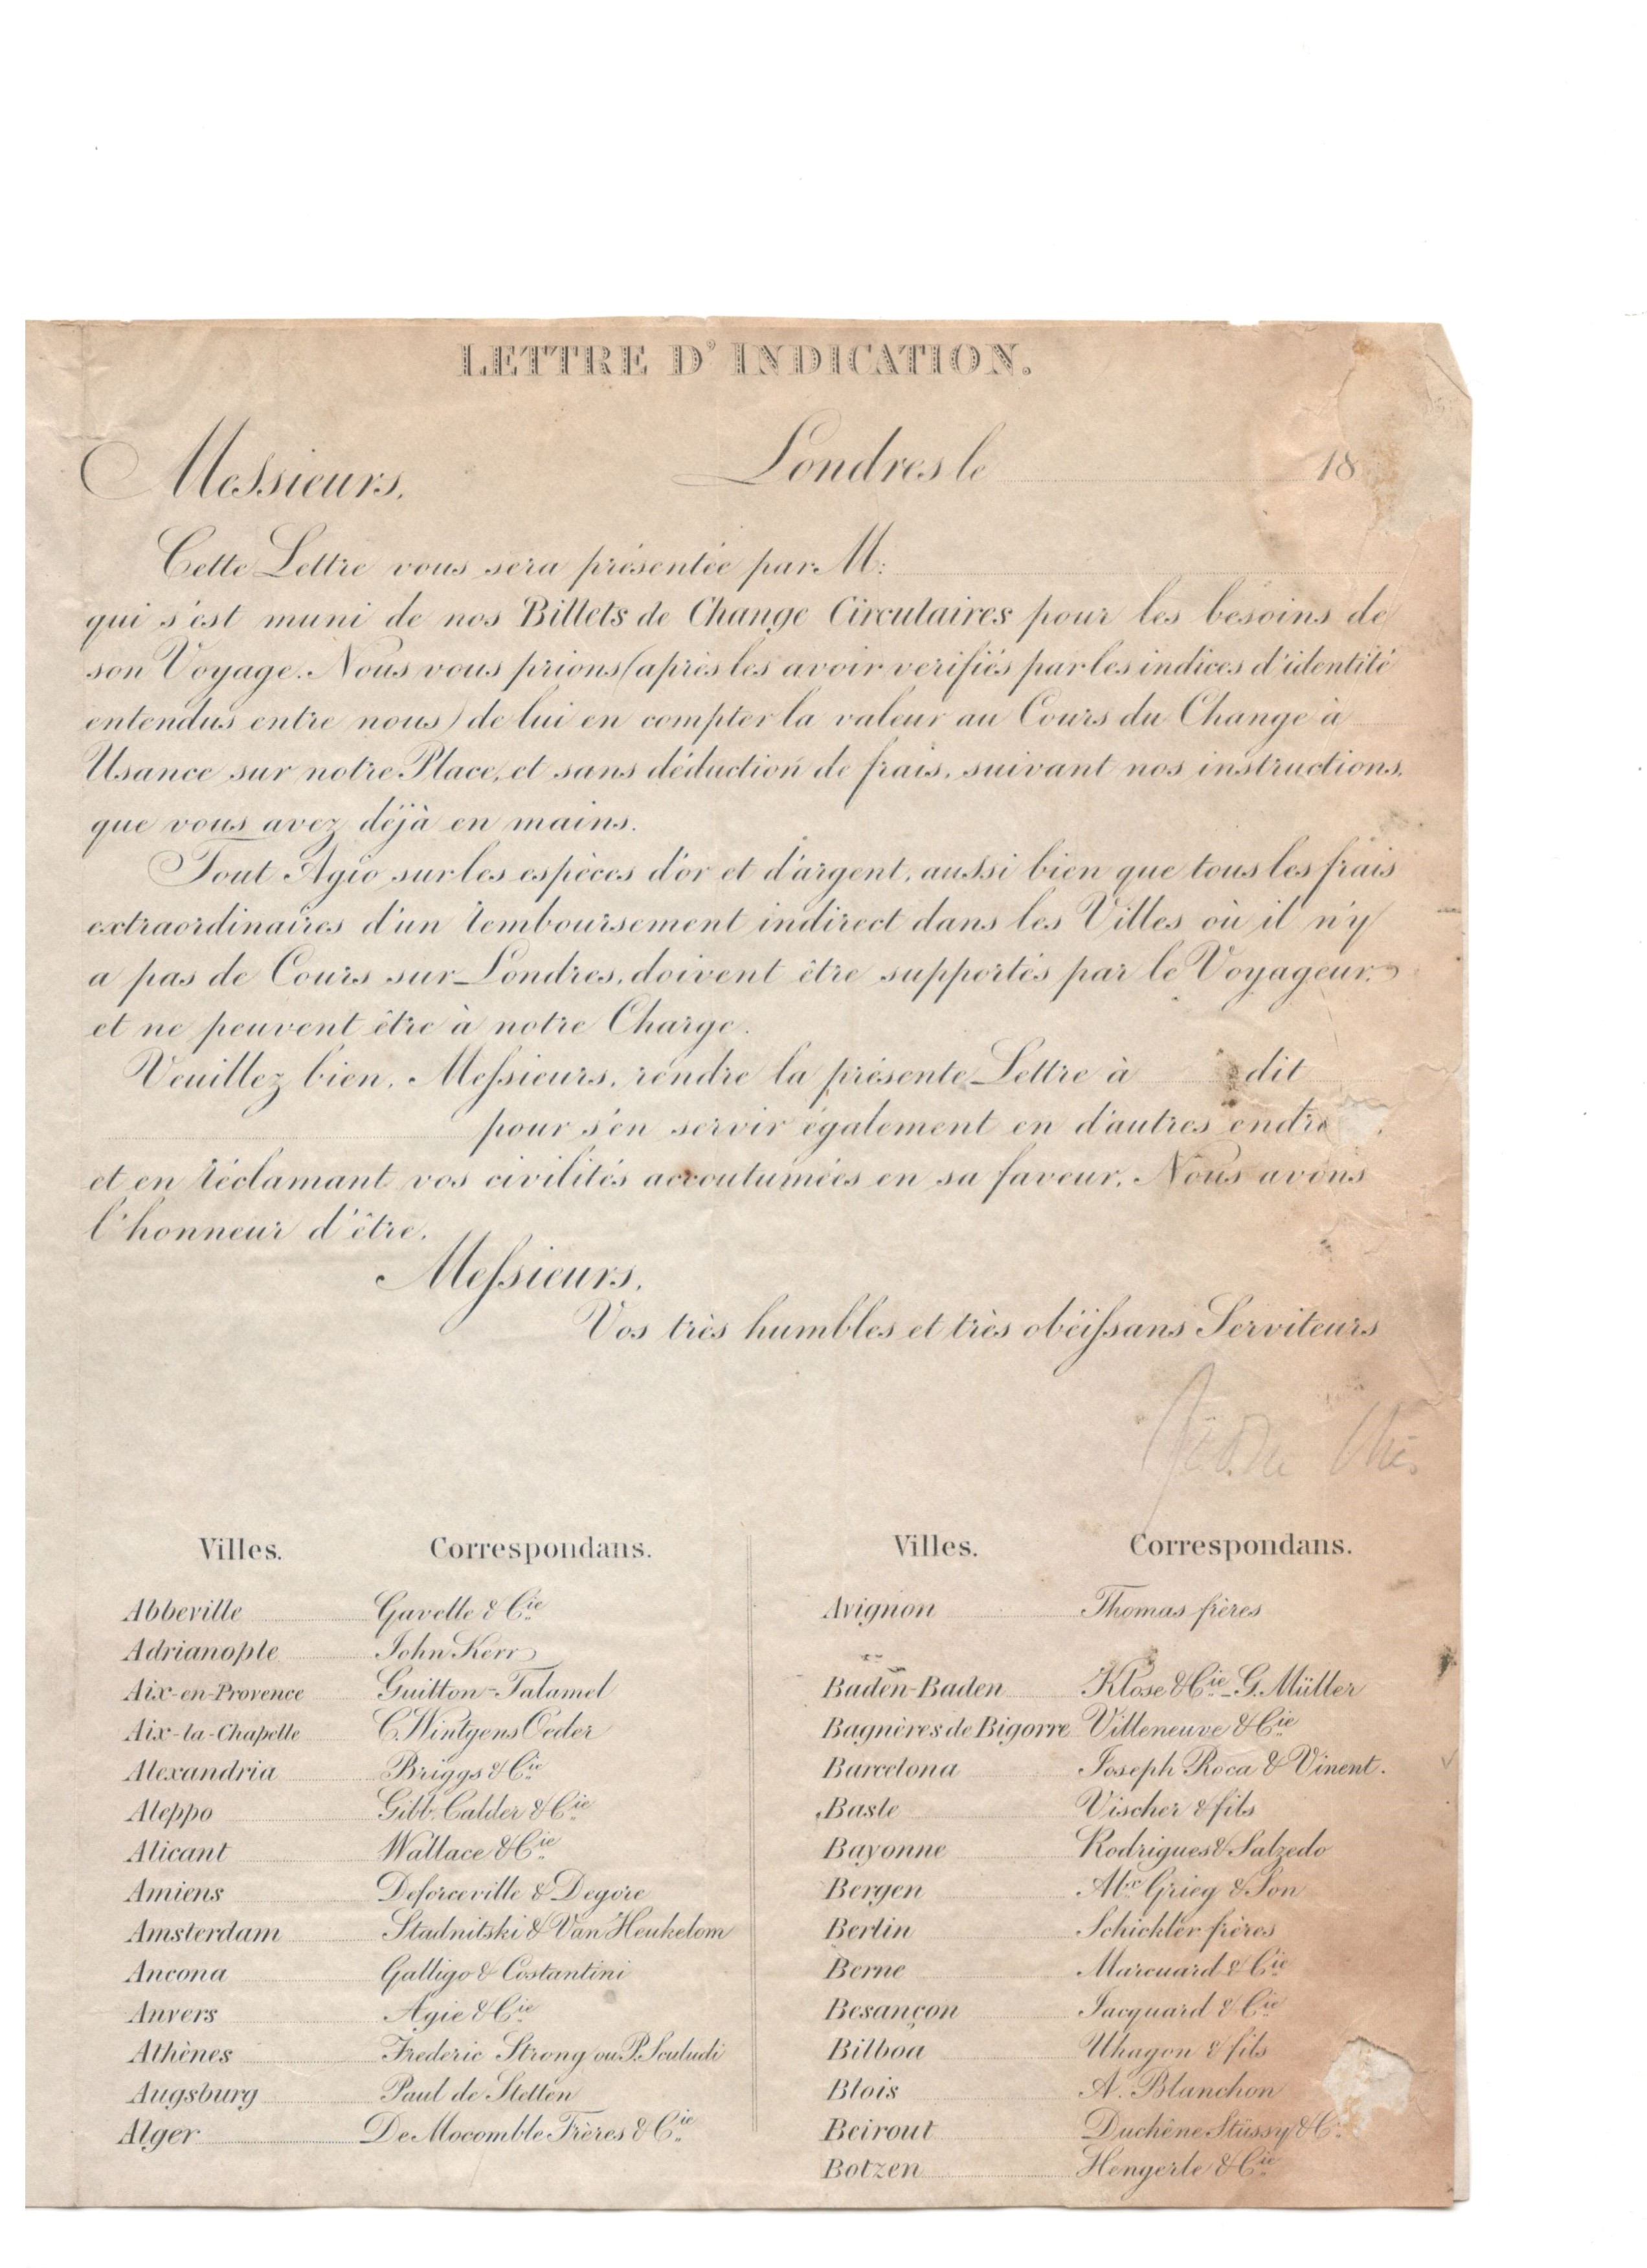 LETTRE D'INDICATION.
Messieurs,
Londres le 18
Cette Lettre vous sera présentée par M:
qui s'est muni de nos Billets de Change Circulaires pour les besoins de
son Voyage. Nous vous prions (après les avoir verifiés par les indices d'identité
entendus entre nous) de lui en compter la valeur au Cours du Change à
Usance sur notre Place, et sans déduction de frais, suivant nos instructions,
que vous avez déjà en mains.
Tout Agio sur les espèces d'or et d'argent, aussi bien que tous les frais
extraordinaires d'un remboursement indirect dans les Villes où il n'y
a pas de Cours sur Londres, doivent être supportés par le Voyageur,
et ne peuvent être à notre Charge.
Veuillez bien, Messieurs, rendre la présente Lettre à dit
pour s'en servir également en d'autres
et en réclamant vos civilités accoutumées en sa faveur, Nous avons
l'honneur d'être,
Messieurs,
Vos très humbles et très obéissans Serviteurs
Villes. Correspondans.
Abbeville Gavelle & Cie
Adrianople John Kerr
Aix-en-Provence Guitton-Talamel
Aix-la-Chapelle C. Wintgens Oeder
Alexandria Briggs & Cie
Aleppo Gibb, Calder & Cie
Alicant Wallace & Cie
Amiens Deforceville & Degore
Amsterdam Stadnitski & Van Heukelom
Ancona Galligo & Costantini
Anvers Agie & Cie
Athènes Frederic Strong ou P. Sculudi
Augsburg Paul de Stetten
Alger De Mocomble Frères & Cie
Villes. Correspondans.
Avignon Thomas frères
Baden-Baden Klose & Cie - G. Müller
Bagnères de Bigorre Villeneuve & Cie
Barcelona Joseph Roca & Vinent.
Basle Vischer & fils
Bayonne Rodrigues & Salzedo
Bergen Alxr Grieg & Son
Berlin Schickler frères
Berne Marcuard & Cie
Besançon Jacquard & Cie
Bilboa Uhagon & fils
Blois A. Blanchon
Beirout Duchêne Stüssy & C
Botzen Hengerle & Cie